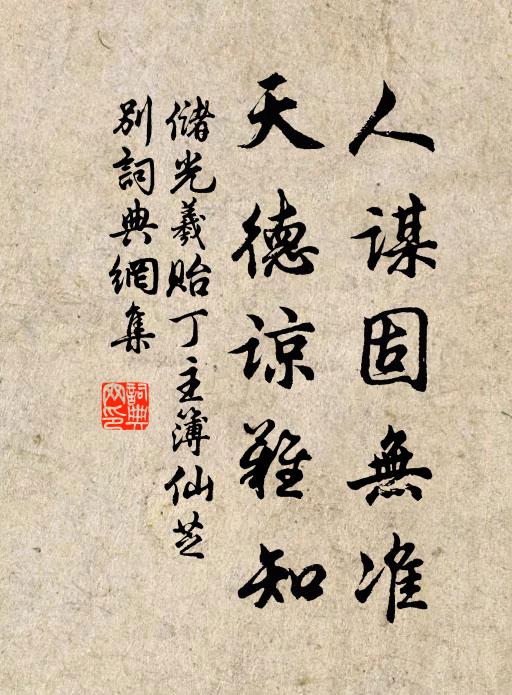 人謀固無准
天德諒難知
儲光羲貽丁主簿仙芝
別詞典網集
詞典
网印